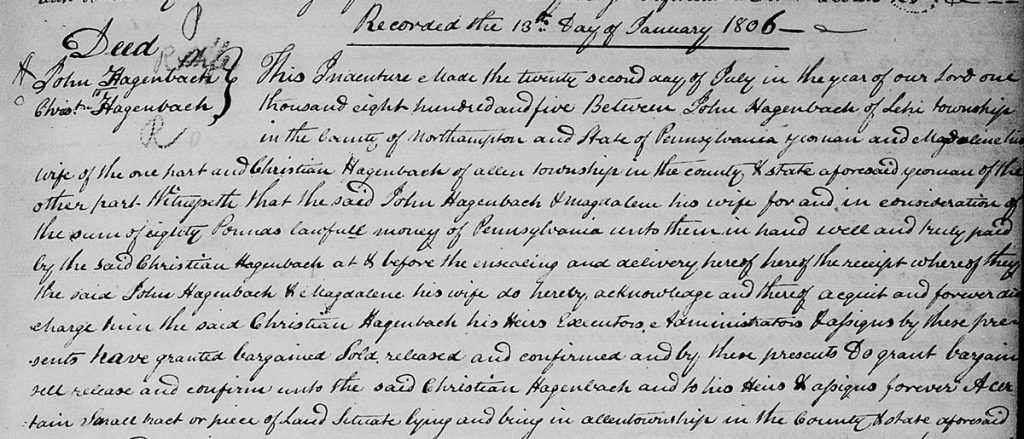 Recorded the 13th Day of January 1806
Deed
John Hagenbach
to
Christn Hagenbach
This Indenture Made the twenty second day of July in the year of our Lord one
thousand eight hundred and five Between John Hagenbach of Lehi township
in the County of Northampton and State of Pennsylvania yeoman and Magdalene his
wife of the one part and Christian Hagenbach of allen township in the county & state aforesaid yeoman of the
other part Witnesseth that the said John Hagenbach & Magdalene his wife for and in consideration of
the sum of eighty Pounds lawfull money of Pennsylvania unto them in hand well and truly paid
by the said Christian Hagenbach at & before the ensealing and delivery hereof hereof the receipt whereof they
the said John Hagenbach & Magdalene his wife do hereby acknowledge and thereof acquit and forever dis
charge him the said Christian Hagenbach his Heirs Executors, Administrators & assigns by these pre
sents have granted bargained Sold, released and confirmed and by these presents Do grant bargain
sell release and confirm unto the said Christian Hagenbach and to his Heirs & assigns forever A cer
tain Small tract or piece of Land Situate lying and being in allentownship in the County & state aforesaid